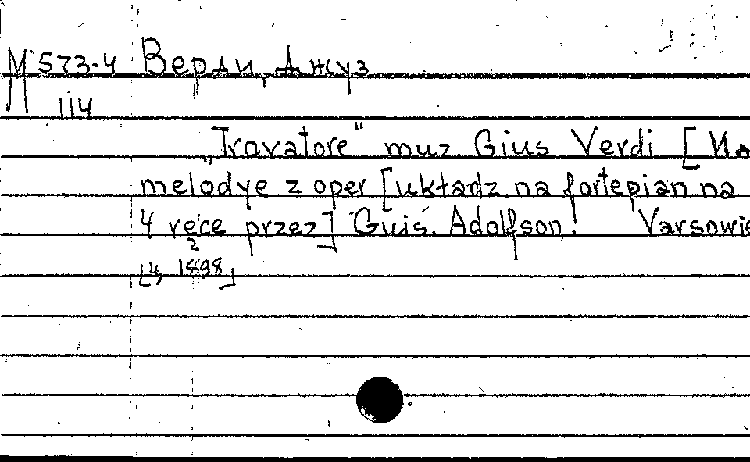 М 573-4 Верди, Джуз
114
„Travatore" muz Gius Verdi [Из
melodye z oper [układz na fortepian na
4 ręce przez] Guis. Adolfson! Varsowie
[4, 1898]